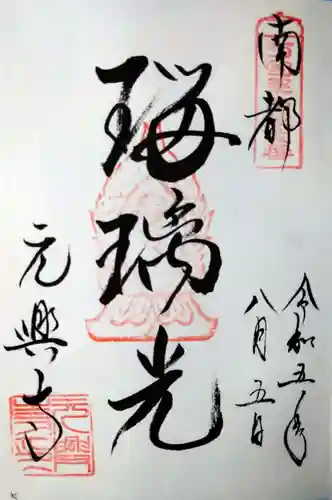 南都
令和五年
八月五日
瑠璃光
元興寺